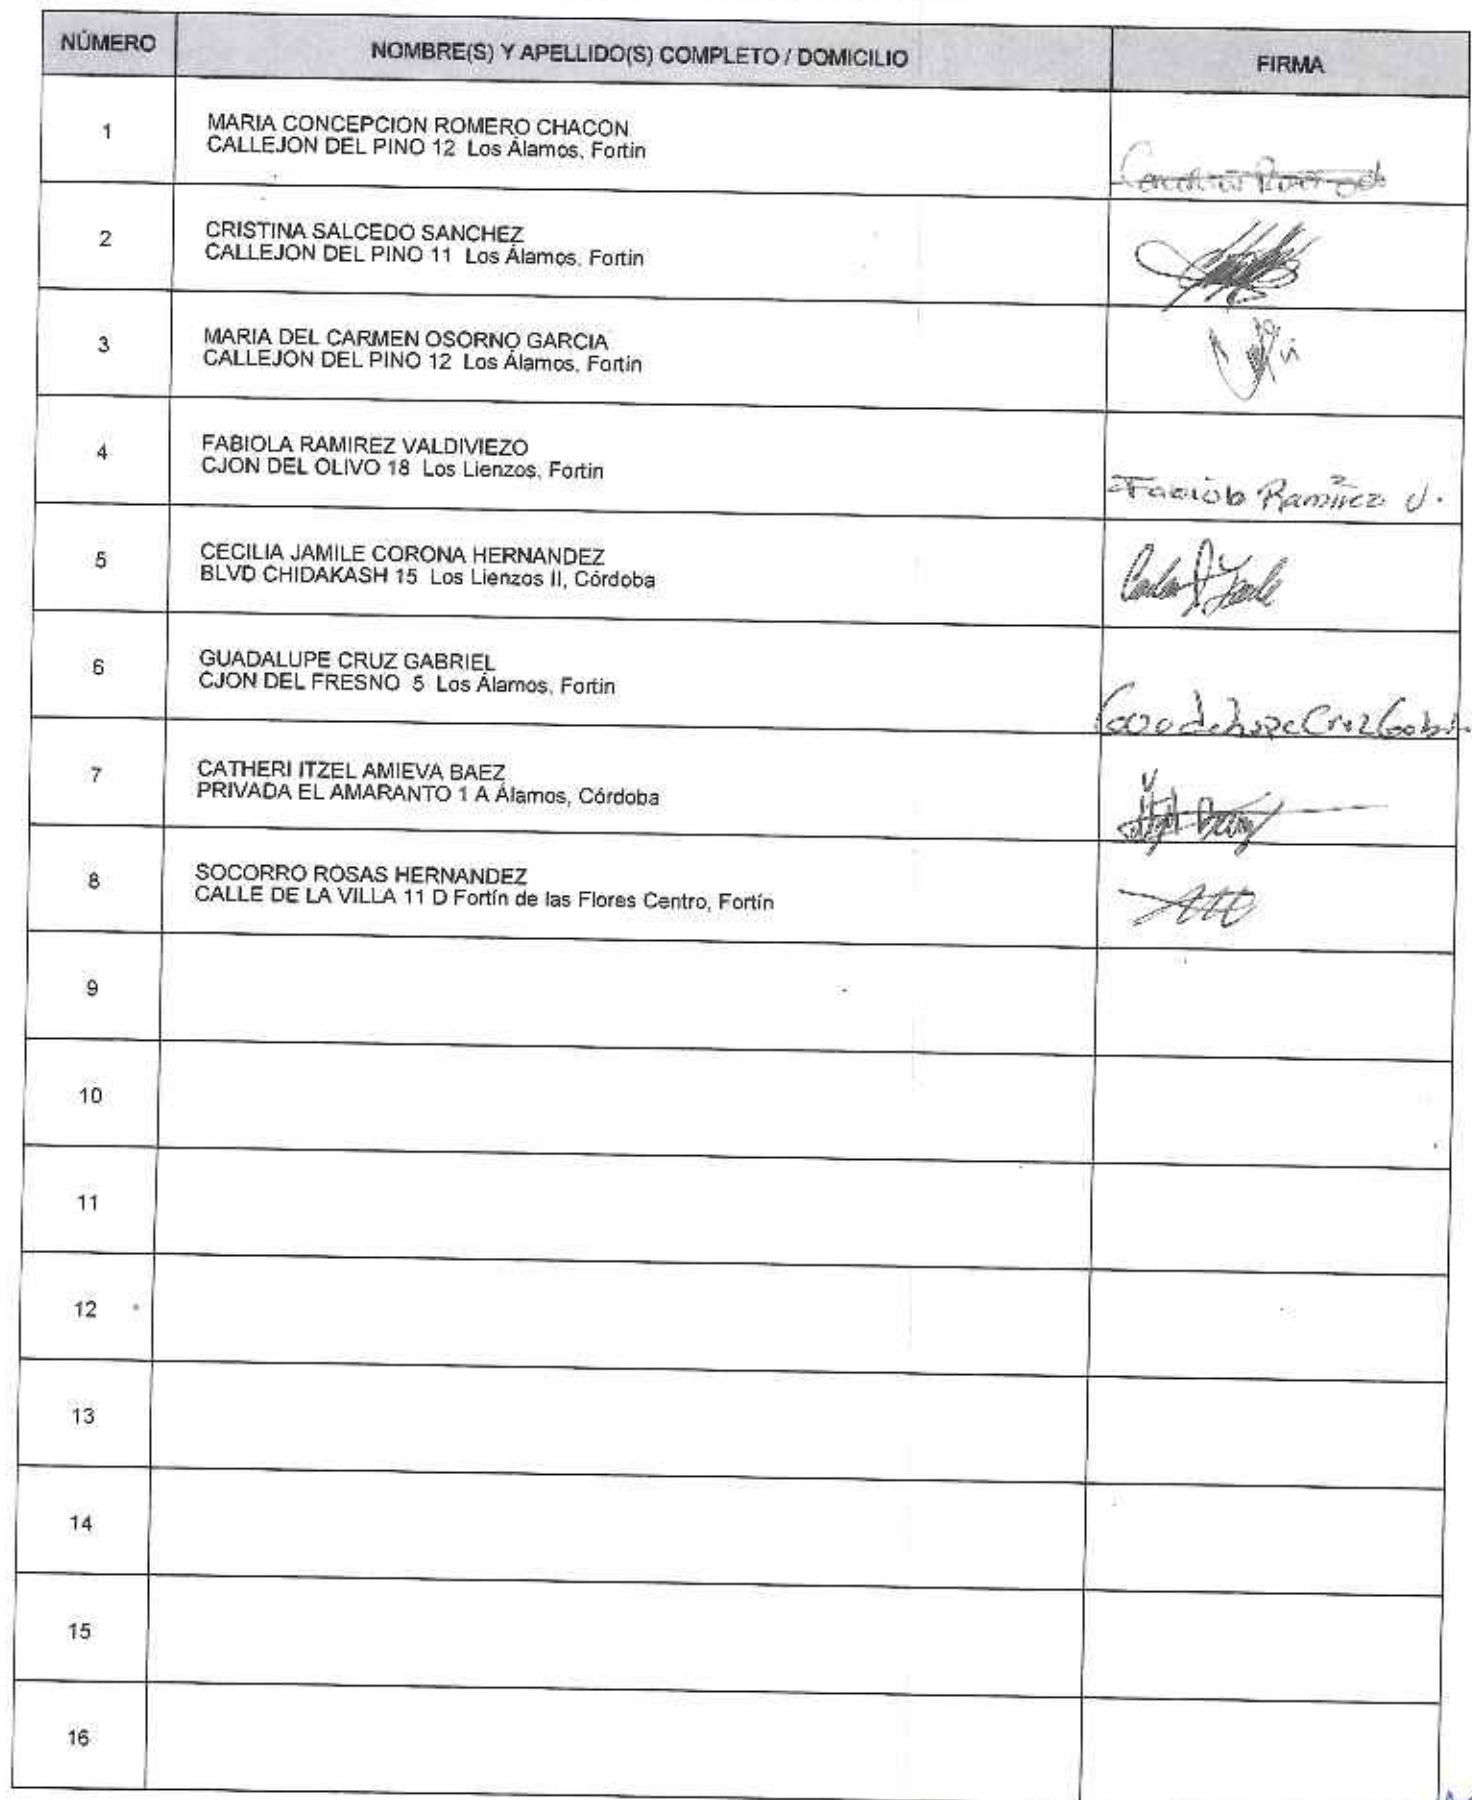 NÚMERO NOMBRE(S) Y APELLIDO(S) COMPLETO / DOMICILIO FIRMA
1 MARIA CONCEPCION ROMERO CHACON
CALLEJON DEL PINO 12 Los Álamos, Fortín
2 CRISTINA SALCEDO SANCHEZ
CALLEJON DEL PINO 11 Los Álamos, Fortín
3 MARIA DEL CARMEN OSORNO GARCIA
CALLEJON DEL PINO 12 Los Álamos, Fortín
4 FABIOLA RAMIREZ VALDIVIEZO
CJON DEL OLIVO 18 Los Lienzos, Fortín
Fabiola Ramírez V.
5 CECILIA JAMILE CORONA HERNANDEZ
BLVD CHIDAKASH 15 Los Lienzos II, Córdoba
6 GUADALUPE CRUZ GABRIEL
CJON DEL FRESNO 5 Los Álamos, Fortín
Guadalupe Cruz
7 CATHERI ITZEL AMIEVA BAEZ
PRIVADA EL AMARANTO 1 A Álamos, Córdoba
8 SOCORRO ROSAS HERNANDEZ
CALLE DE LA VILLA 11 D Fortín de las Flores Centro, Fortín
9
10
11
12
13
14
15
16